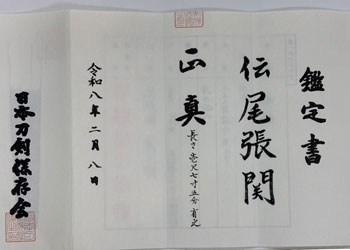 鑑定書
伝尾張関
正真
長さ壱尺七寸五分有之
令和八年二月八日
日本刀剣保存会